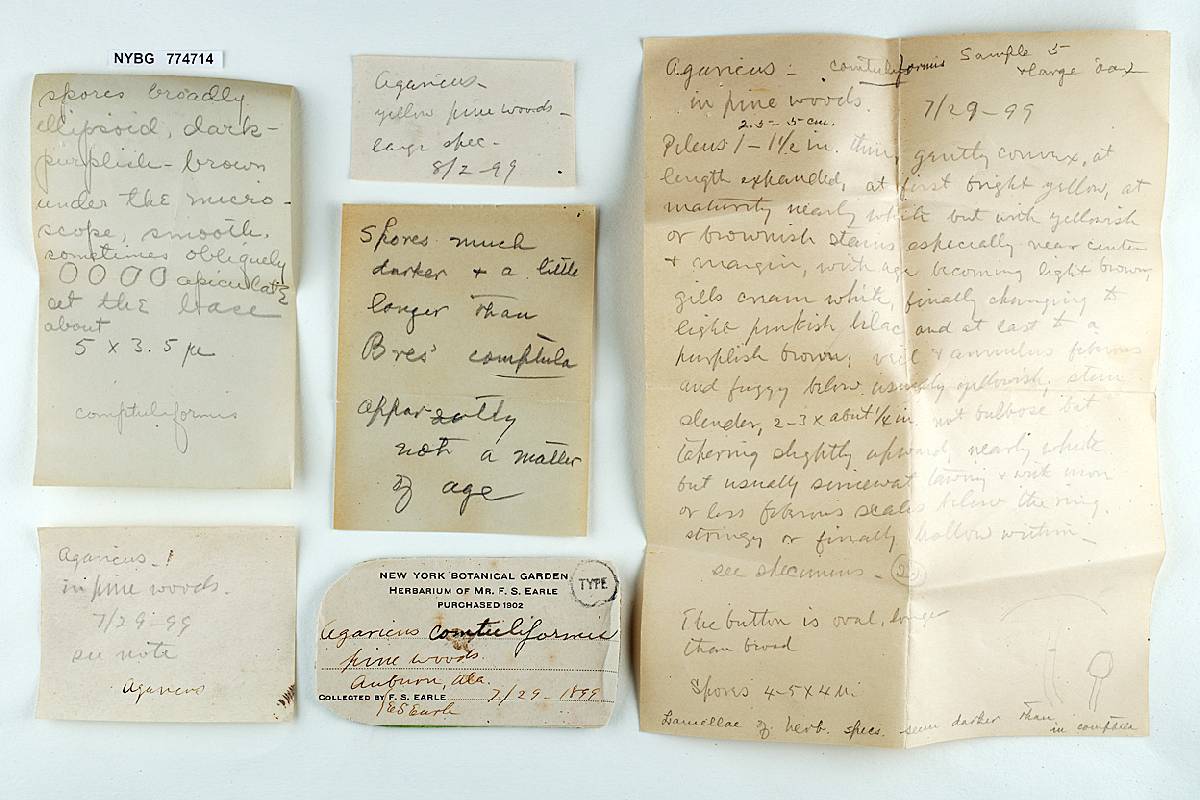 NYBG 774714
spores broadly
ellipsoid, dark-
purplish-brown
under the micro-
scope, smooth.
sometimes obliquely
apiculate
at the base
about
5 x 3.5 µ
comptuliformis
Agaricus-
yellow pine woods-
large spec-
8/2-99
Spores much
darker + a little
longer than
Bres' comptula
apparently
not a matter
of age
Agaricus-1
in pine woods.
7/29-99
see note
Agaricus
NEW YORK BOTANICAL GARDEN
HERBARIUM OF MR. F. S. EARLE
PURCHASED 1902
TYPE
Agaricus comtuliformis
pine woods.
Auburn, Ala.
COLLECTED BY F. S. EARLE 7/29-1899
FS Earle
Agaricus- comtuliformis Sample 5
+ large
in pine woods. 7/29-99
2.5-5 cm.
Pileus 1-1½ in. thin, gently convex, at
length expanded, at first bright yellow, at
maturity nearly white but with yellowish
or brownish stains especially near center
+ margin, with age becoming light brown,
gills cream white, finally changing to
light pinkish lilac and at last to a
purplish brown; veil + annulus fibrous
and fuzzy below usually yellowish, stem
slender, 2-3 x about ¼ in. not bulbose but
tapering slightly upward, nearly white
but usually somewat tawny + with more
or less fibrous scales below the ring.
stringy or finally hollow within-
see specimens-
The button is oval, longer
than broad
Spores 4-5x4 µ.
Lamellae of herb. specs. seem darker than
in comptula